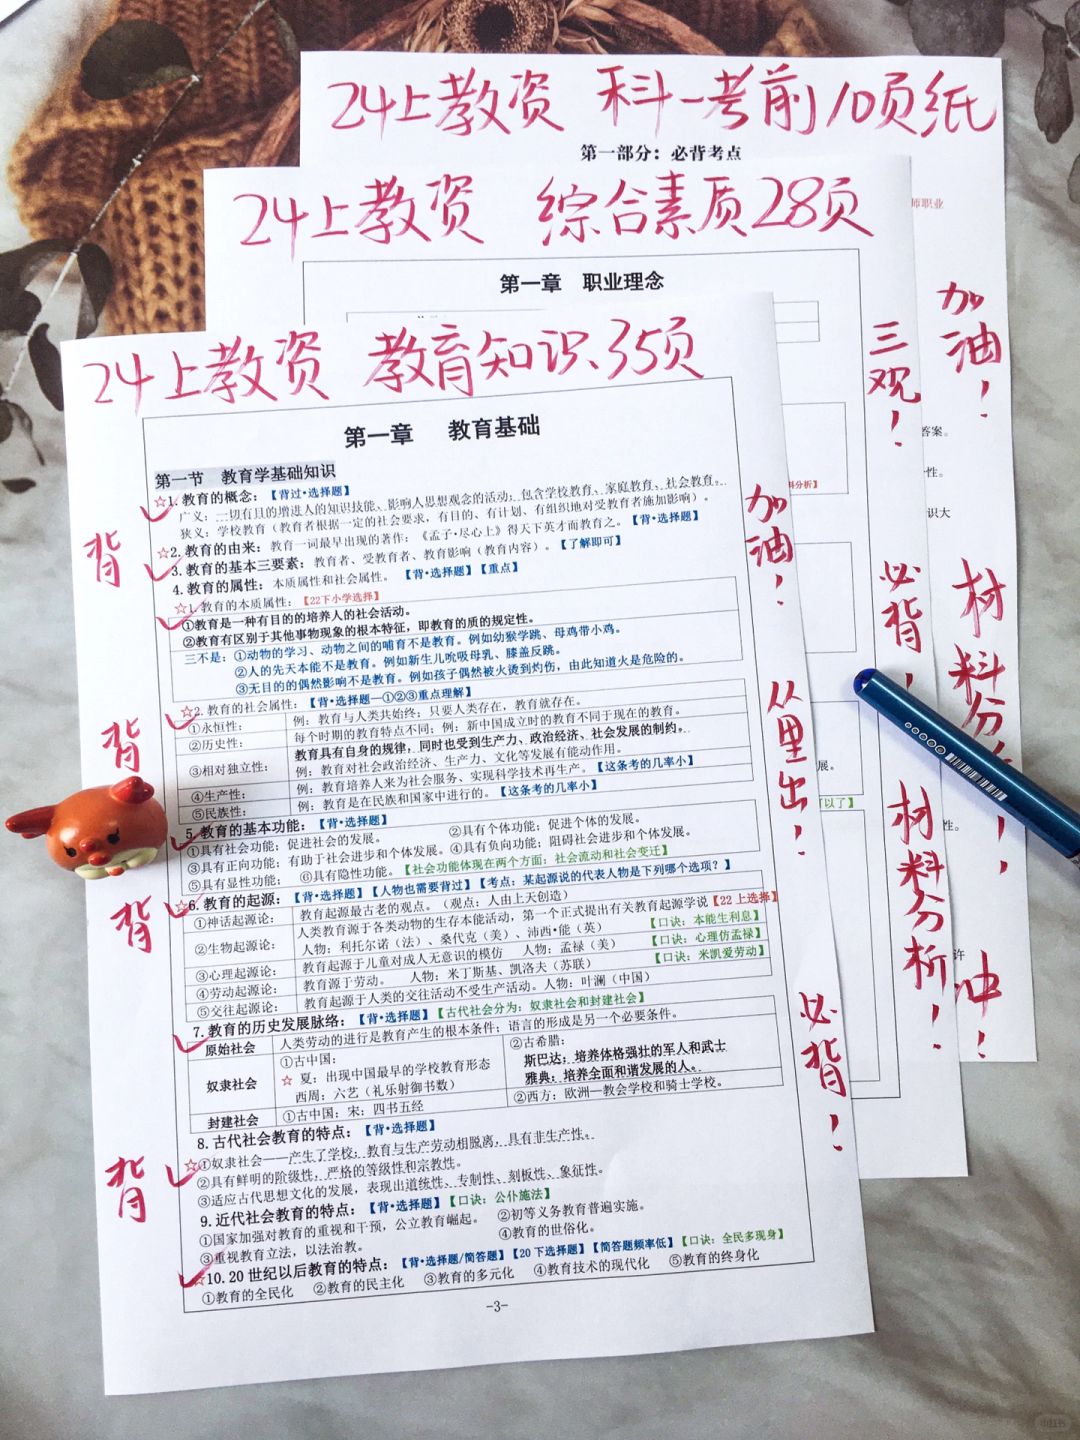 24上教资 科一考前10页纸
第一部分：必背考点
师职业
加油！
答案。
性。
识大
材料分
冲！
24上教资 综合素质28页
第一章 职业理念
三观！
料分析】
必背！
展。
可以了】
性。
材料分析！
许
24上教资 教育知识35页
第一章 教育基础
第一节 教育学基础知识
☆1.教育的概念：【背过•选择题】
广义：一切有目的增进人的知识技能、影响人思想观念的活动；包含学校教育、家庭教育、社会教育。
狭义：学校教育（教育者根据一定的社会要求，有目的、有计划、有组织地对受教育者施加影响）。
☆2.教育的由来：教育一词最早出现的著作：《孟子•尽心上》得天下英才而教育之。【背•选择题】
3.教育的基本三要素：教育者、受教育者、教育影响（教育内容）。【了解即可】
4.教育的属性：本质属性和社会属性。【背•选择题】【重点】
☆1.教育的本质属性：【22下小学选择】
①教育是一种有目的的培养人的社会活动。
②教育有区别于其他事物现象的根本特征，即教育的质的规定性。
三不是：①动物的学习、动物之间的哺育不是教育。例如幼猴学跳、母鸡带小鸡。
②人的先天本能不是教育。例如新生儿吮吸母乳、膝盖反跳。
③无目的的偶然影响不是教育。例如孩子偶然被火烫到灼伤，由此知道火是危险的。
☆2.教育的社会属性：【背•选择题—①②③重点理解】
①永恒性： 例：教育与人类共始终；只要人类存在，教育就存在。
②历史性： 每个时期的教育特点不同；例：新中国成立时的教育不同于现在的教育。
③相对独立性： 教育具有自身的规律，同时也受到生产力、政治经济、社会发展的制约。
例：教育对社会政治经济、生产力、文化等发展有能动作用。
④生产性： 例：教育培养人来为社会服务、实现科学技术再生产。【这条考的几率小】
⑤民族性： 例：教育是在民族和国家中进行的。【这条考的几率小】
5.教育的基本功能：【背•选择题】
①具有社会功能；促进社会的发展。 ②具有个体功能；促进个体的发展。
③具有正向功能；有助于社会进步和个体发展。④具有负向功能；阻碍社会进步和个体发展。
⑤具有显性功能； ⑥具有隐性功能。【社会功能体现在两个方面：社会流动和社会变迁】
☆6.教育的起源：【背•选择题】【人物也需要背过】【考点：某起源说的代表人物是下列哪个选项？】
①神话起源论： 教育起源最古老的观点。（观点：人由上天创造）
②生物起源论： 人类教育源于各类动物的生存本能活动，第一个正式提出有关教育起源学说【22上选择】
人物：利托尔诺（法）、桑代克（美）、沛西•能（英） 【口诀：本能生利息】
③心理起源论： 教育起源于儿童对成人无意识的模仿 人物：孟禄（美） 【口诀：心理仿孟禄】
④劳动起源论： 教育源于劳动。 人物：米丁斯基、凯洛夫（苏联） 【口诀：米凯爱劳动】
⑤交往起源论： 教育起源于人类的交往活动不受生产活动。人物：叶澜（中国）
7.教育的历史发展脉络：【背•选择题】【古代社会分为：奴隶社会和封建社会】
原始社会 人类劳动的进行是教育产生的根本条件；语言的形成是另一个必要条件。
奴隶社会 ①古中国： ②古希腊：
☆ 夏：出现中国最早的学校教育形态 斯巴达：培养体格强壮的军人和武士
西周：六艺（礼乐射御书数） 雅典：培养全面和谐发展的人。
封建社会 ①古中国：宋：四书五经 ②西方：欧洲—教会学校和骑士学校。
8.古代社会教育的特点：【背•选择题】
☆①奴隶社会——产生了学校，教育与生产劳动相脱离，具有非生产性。
②具有鲜明的阶级性，严格的等级性和宗教性。
③适应古代思想文化的发展，表现出道统性、专制性、刻板性、象征性。
9.近代社会教育的特点：【背•选择题】【口诀：公仆施法】
①国家加强对教育的重视和干预，公立教育崛起。 ②初等义务教育普遍实施。
③重视教育立法，以法治教。 ④教育的世俗化。
☆10.20世纪以后教育的特点：【背•选择题/简答题】【20下选择题】【简答题频率低】【口诀：全民多现身】
①教育的全民化 ②教育的民主化 ③教育的多元化 ④教育技术的现代化 ⑤教育的终身化
-3-
背
背
背
背
加油！
从里出！
必背！
小红书